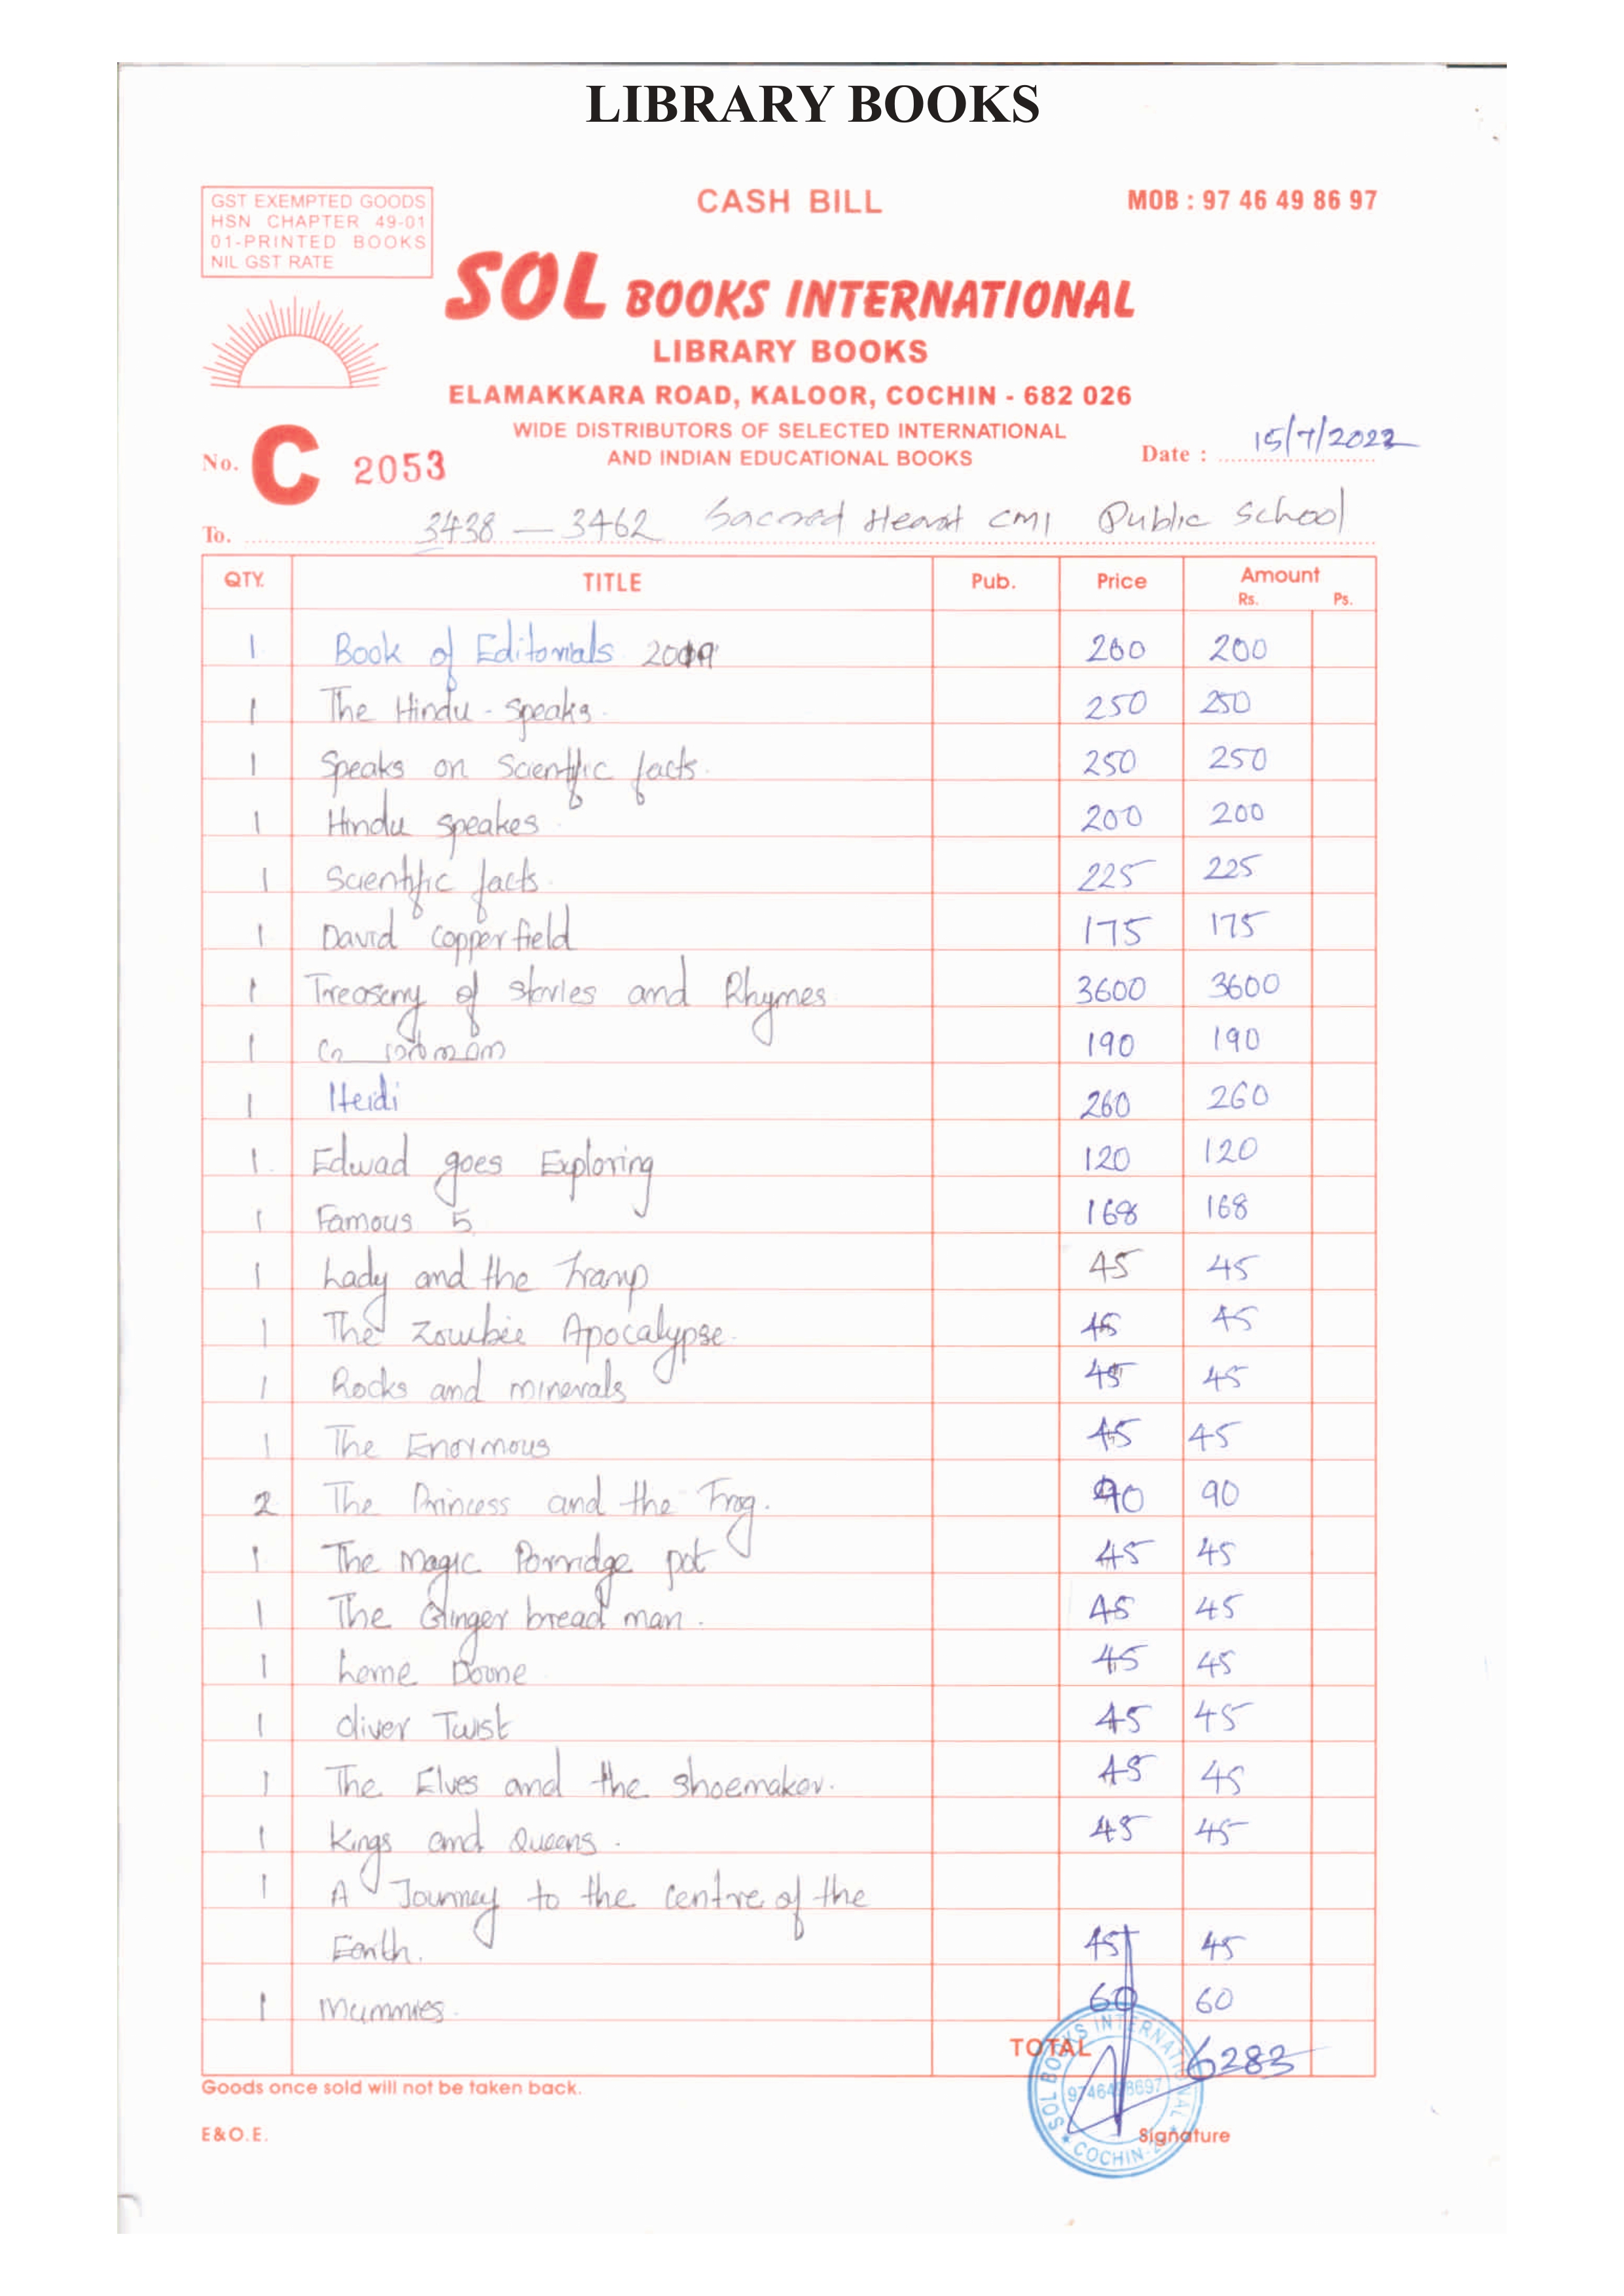 LIBRARY BOOKS
GST EXEMPTED GOODS
HSN CHAPTER 49-01
01-PRINTED BOOKS
NIL GST RATE
CASH BILL
MOB : 97 46 49 86 97
SOL BOOKS INTERNATIONAL
LIBRARY BOOKS
ELAMAKKARA ROAD, KALOOR, COCHIN - 682 026
WIDE DISTRIBUTORS OF SELECTED INTERNATIONAL
AND INDIAN EDUCATIONAL BOOKS
No. C 2053
Date : 15/7/2022
To. 3438 — 3462 Sacred Heart CMI Public School
QTY. TITLE Pub. Price Amount
Rs. Ps.
1 Book of Editorials 2019 200 200
1 The Hindu - Speaks. 250 250
1 Speaks on Scientific facts. 250 250
1 Hindu speakes 200 200
1 Scientific facts. 225 225
1 David Copperfield 175 175
1 Treasury of stories and Rhymes 3600 3600
1 190 190
1 Heidi 260 260
1 Edwad goes Exploring 120 120
1 Famous 5 168 168
1 Lady and the Tramp 45 45
1 The Zombie Apocalypse. 45 45
1 Rocks and minerals 45 45
1 The Enormous 45 45
2 The Princess and the Frog. 90 90
1 The Magic Porridge pot 45 45
1 The Ginger bread man. 45 45
1 Doone 45 45
1 Oliver Twist 45 45
1 The Elves and the shoemaker. 45 45
1 Kings and Queens. 45 45
1 A Journey to the centre of the
Earth. 45 45
1 Mummies. 60 60
TOTAL 6283
Goods once sold will not be taken back.
SOL BOOKS INTERNATIONAL
9746498697
COCHIN
E&O.E.
Signature